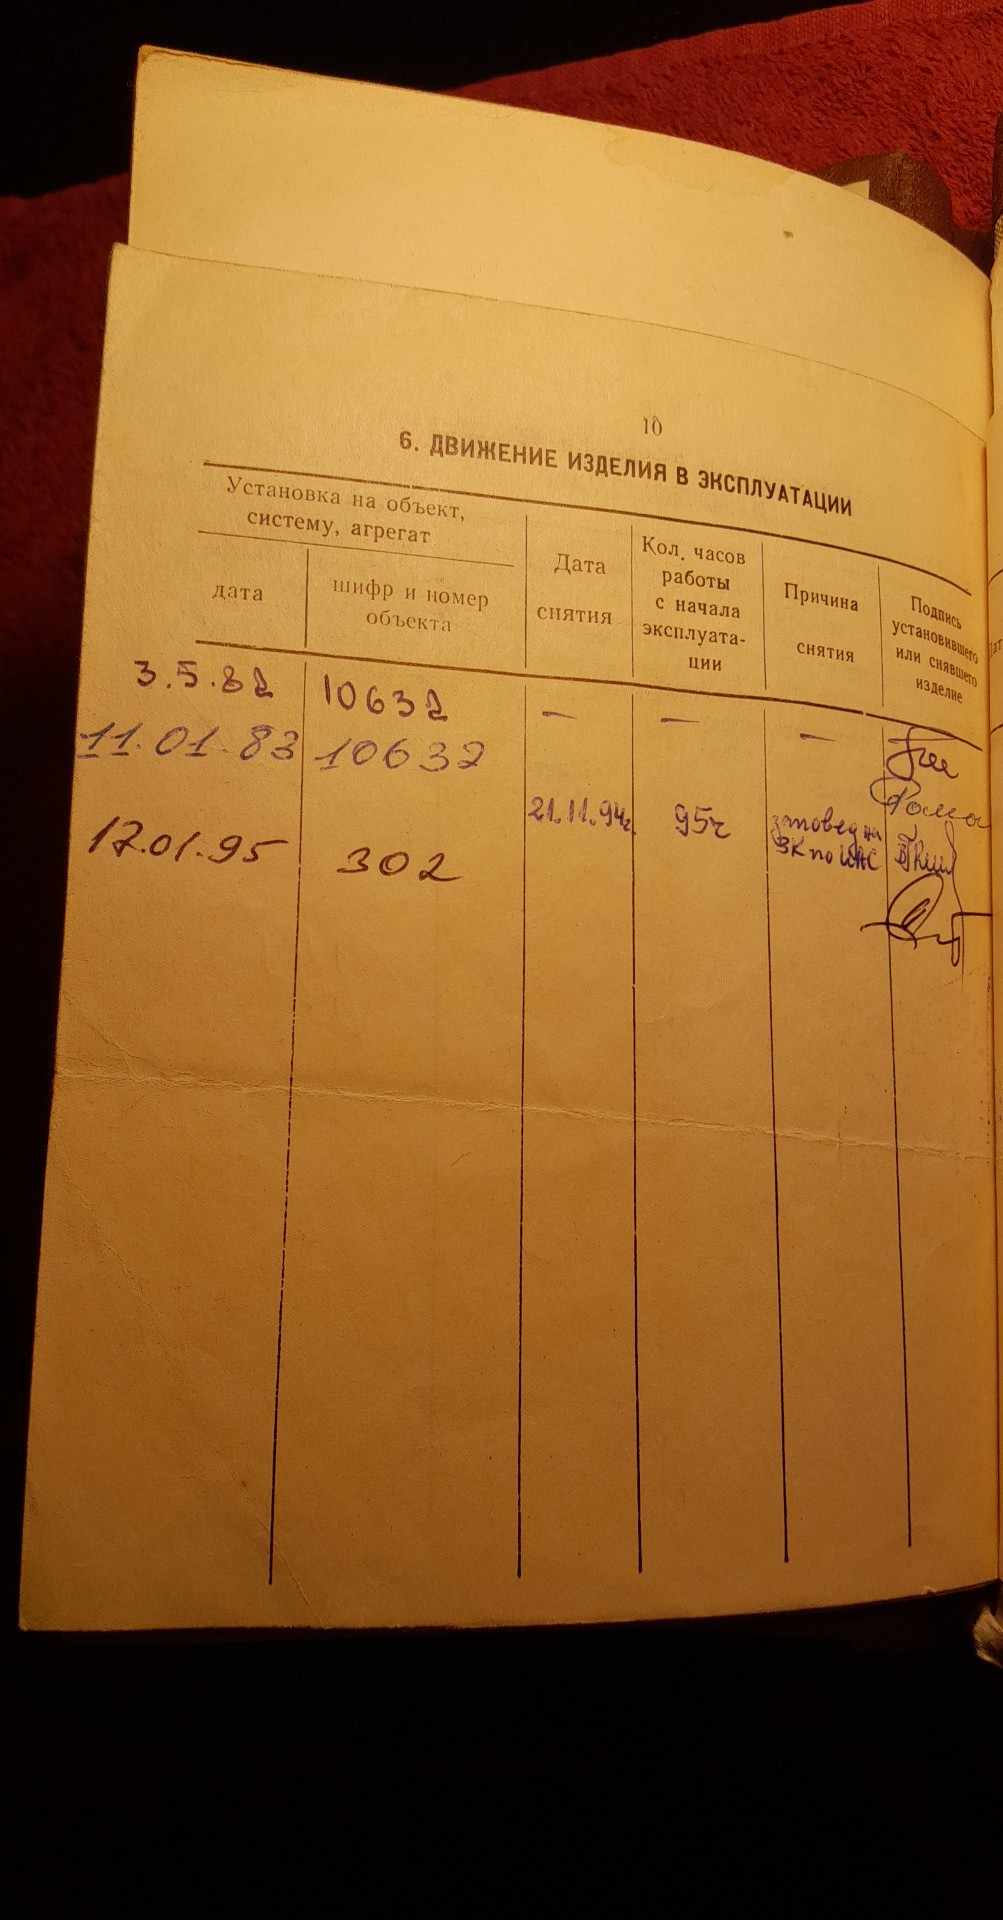 10
6. ДВИЖЕНИЕ ИЗДЕЛИЯ В ЭКСПЛУАТАЦИИ
Установка на объект,
систему, агрегат
дата
шифр и номер
объекта
Дата
снятия
Кол. часов
работы
с начала
эксплуата-
ции
Причина
снятия
Подпись
установившего
или снявшего
изделие
3.5.82 10632 — — —
11.01.83 10632
21.11.94г. 95ч заповед на
ЗК по ИАС
17.01.95 302